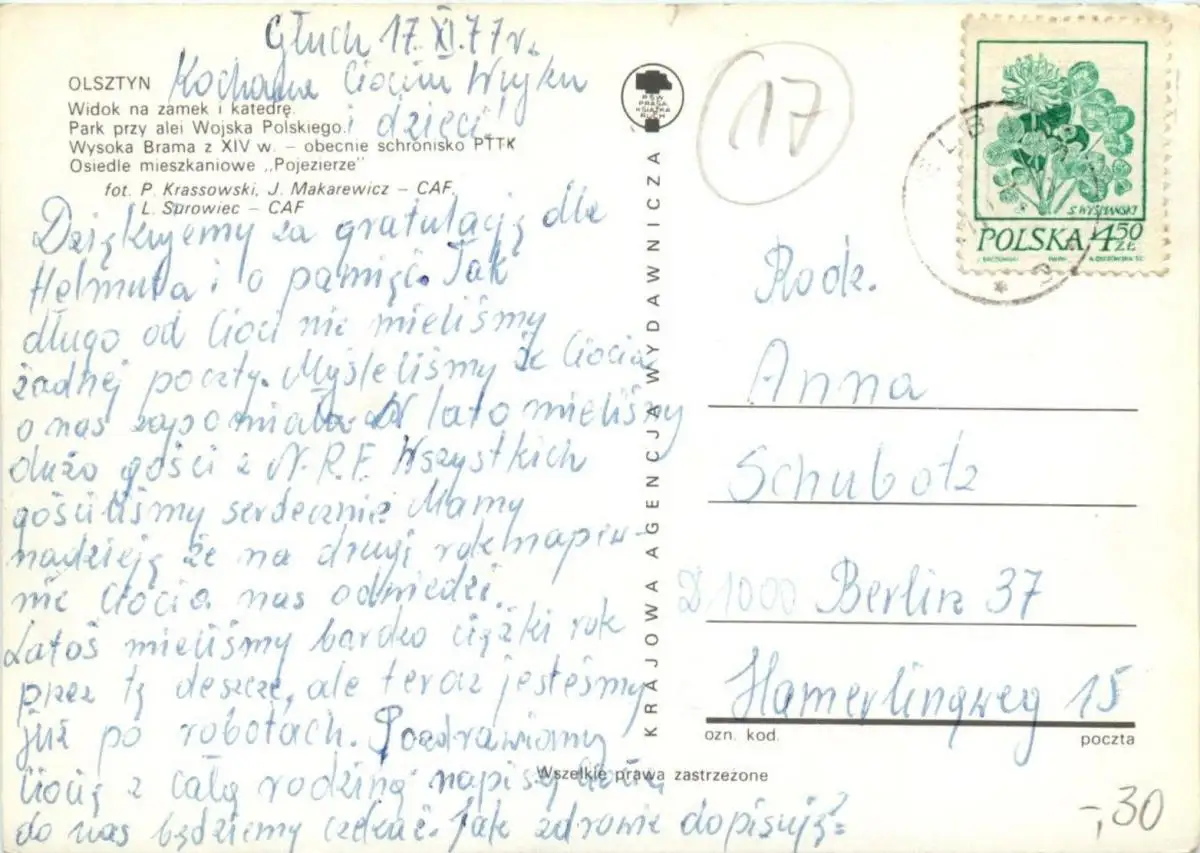 Głuch 17.XI.77r.
Kochana Ciociu Wujku
i dzieci!
OLSZTYN
Widok na zamek i katedrę.
Park przy alei Wojska Polskiego.
Wysoka Brama z XIV w. – obecnie schronisko PTTK
Osiedle mieszkaniowe „Pojezierze"
fot. P. Krassowski, J. Makarewicz – CAF,
L. Surowiec – CAF
Dziękujemy za gratulację dla
Helmuta i o pamięć. Tak
długo od Cioci nie mieliśmy
żadnej poczty. Myśleliśmy że Ciocia
o nas zapomniała. W lato mieliśmy
dużo gości z N.R.F. Wszystkich
gościliśmy serdecznie. Mamy
nadzieję że na drugi rok napew-
nie Ciocia nas odwiedzi.
Latoś mieliśmy bardzo ciężki rok
przez tę deszcze, ale teraz jesteśmy
już po robotach. Pozdrawiamy
Ciocię z całą rodziną napisz
do nas będziemy czekać. Jak zdrowie dopisuję?
KRAJOWA AGENCJA WYDAWNICZA
RSW
PRASA
KSIĄŻKA
RUCH
17
S. WYSPIAŃSKI
POLSKA 4.50 ZŁ
Rodz.
Anna
Schubotz
D 1000 Berlin 37
Hamerlingweg 15
ozn. kod. poczta
Wszelkie prawa zastrzeżone
-,30